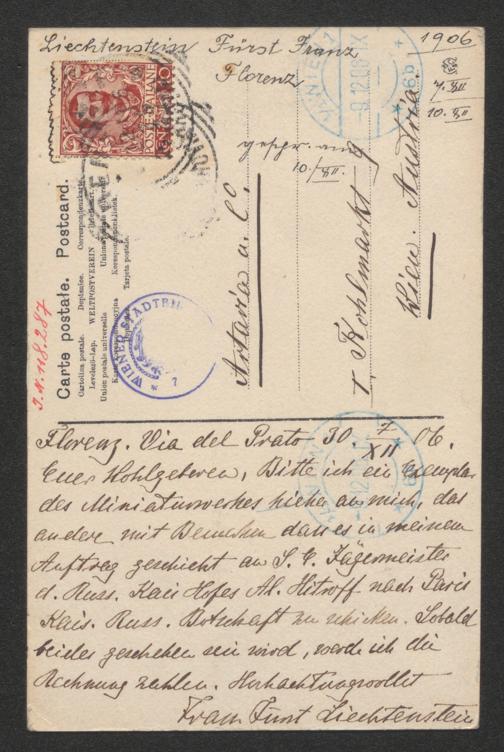 Liechtenstein Fürst Franz
Florenz
1906
7. XII
10. XII
POSTE ITALIANE
Carte postale. Postcard.
Cartolina postale. Dopisnice. Correspondenzkarte.
Levelező-Lap. WELTPOSTVEREIN
Union postale universelle
Tarjeta postale.
WIENER STADTBI
7
J.N. 118.287
10./XII
Artaria a. C°
I, Kohlmarkt 9
Wien. Austria.
9.12.06 IX
Florenz. Via del Prato 30. 7/XII 06.
Euer Hohlgeboren, Bitte ich ein Exemplar
des Miniaturwerkes hieher an mich, das
andere mit Bemerken dass es in meinem
Auftrag geschieht an S. E. Jägermeister
d. Russ. Kais Hofes Al. Hitroff nach Paris
Kais. Russ. Botschaft zu schicken. Sobald
beides geschehen sein wird, werde ich die
Rechnung zahlen. Hochachtungsvollst
Franz Fürst Liechtenstein